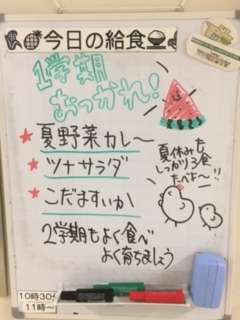 今日の給食
1学期
おつかれ!
★夏野菜カレ〜
★ツナサラダ
★こだますいか
夏休みも
しっかり3食
たべよ〜!!
2学期もよく食べ
よく育ちましょう
10時30
11時〜